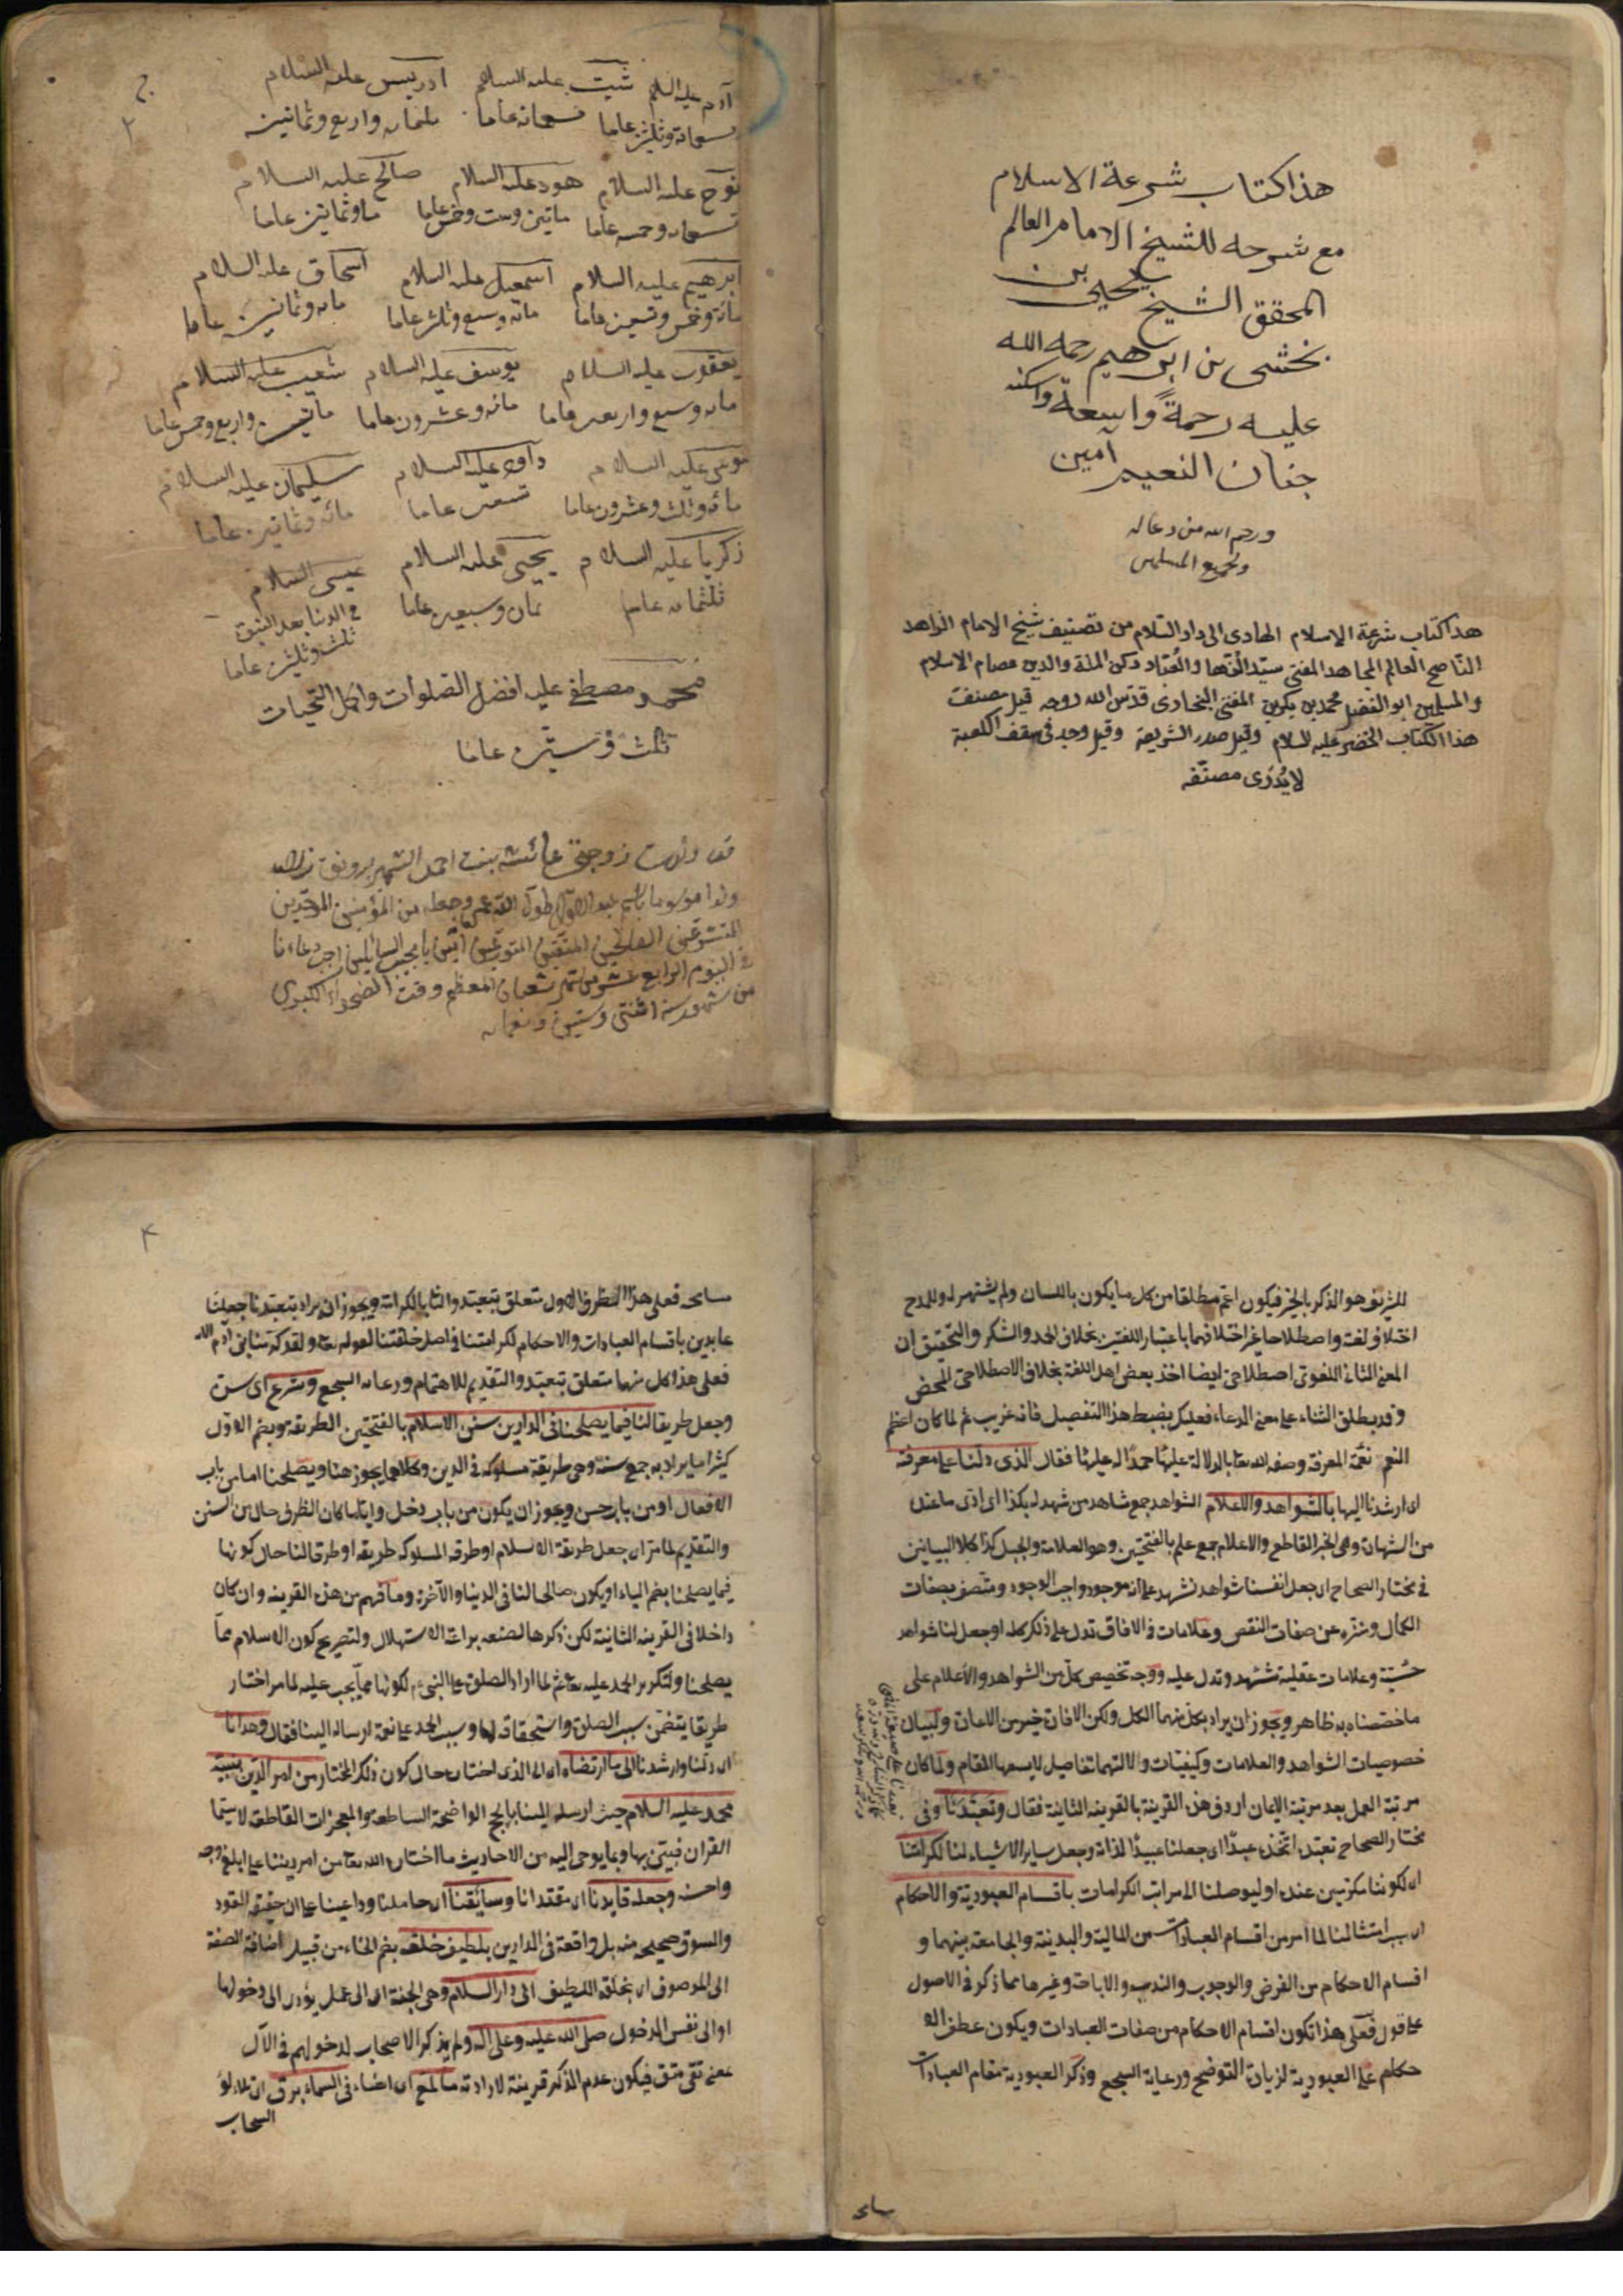 هذا كتاب شرعة الاسلام
مع شرحه للشيخ الامام العالم
المحقق الشيخ يحيى بن
بخشى بن ابرهيم رحمه الله
عليه رحمة واسعة واسكنه
جنان النعيم امين
ورحم الله من دعا له
ولجميع المسلمين
هذا كتاب شرعة الإسلام الهادى الى دار السلام من تصنيف شيخ الامام الزاهد
الناصح العالم المجاهد المفتى سيد الفقهاء والعباد ركن الملة والدين عصام الاسلام
والمسلمين ابو الفضل محمد بن بكر المفتى البخارى قدس الله روحه قيل مصنف
هذا الكتاب الخضر عليه السلام وقيل صدر الشريعة وقيل وجد فى سقف الكعبة
لا يُدْرَى مصنفه
٢
آدم عليه السلم شيث عليه السلام ادريس عليه السلام
تسعمائة وثلثين عاما تسعمائة عاما واربع وثمانين
نوح عليه السلام هود عليه السلام صالح عليه السلام
عاما ماتين وست وخمس عاما وثمانين عاما
ابرهيم عليه السلام اسمعيل عليه السلام اسحاق عليه السلام
مائة وخمس وتسعين عاما مائه وسبع وثلثين عاما مائه وثمانين عاما
يعقوب عليه السلام يوسف عليه السلام شعيب عليه السلام
مائه وسبع واربعين عاما مائه وعشرون عاما ماتين واربع وخمس عاما
موسى عليه السلام داود عليه السلام سليمان عليه السلام
مائه وثلث وعشرون عاما تسعين عاما مائه وثمانين عاما
زكريا عليه السلام يحيى عليه السلام عيسى السلام
ثلثمائه عاما ثمان وسبعين عاما فى الدنيا بعد
ثلث وثلثين عاما
محمد مصطفى عليه افضل الصلوات واكمل التحيات
ثلث و ستين عاما
قد ولدت زوجتى عائشه بنت احمد الشهير
ولدا موسوما باسم طول الله عمره وجعله من المؤمنين الموحدين
المتشرعين الصالحين المتقين المتورعين امين يا مجيب السائلين اجب دعاءنا
فى اليوم الرابع عشر من شهر شعبان المعظم وقت الضحوة الكبرى
من شهور سنة اثنتى وستين وتسعمائه
هو الذكر بالخير فيكون اعم مطلقا من كل ما يكون باللسان ولم يشتهر له وللمدح
اختلاف لغة واصطلاحا غير اختلافهما باعتبار اللفتين بخلاف الحمد والشكر والتحقيق ان
المعنى الثانى اللغوى اصطلاحى ايضا اخذ بعض اهل اللغة بخلاف الاصطلاحى المحض
وقد يطلق الثناء على معنى الدعاء فعليك بضبط هذا التفصيل فانه غريب ثم لما كان اعظم
النعم نعمة المعرفة وصفه الله تعا بالدلالة عليها حمدا له عليها فقال الذى دلنا على معرفته
اى ارشدنا اليها بالشواهد والاعلام الشواهد جمع شاهد من شهد له بكذا اى ادى ما عنده
من الشهادة وهى الخبر القاطع والاعلام جمع علم بالفتحتين وهو العلامة والجبل كذا كلا البيانين
فى مختار الصحاح اى جعل انفسنا شواهد تشهد على انه موجود واجب الوجود ومتصف بصفات
الكمال ومنزه عن صفات النقص وعلامات فى الافاق تدل على ذلك كله او جعل لنا شواهد
حسّية وعلامات عقلية تشهد وتدل عليه ووجه تخصيص كل من الشواهد والأعلام على
ما خصصناه به ظاهر ويجوز ان يراد بكل منهما الكل ولكن الافادة خير من الاعادة ولبيان
خصوصيات الشواهد والعلامات وكيفيات دلالتهما تفاصيل لا يسعها المقام ولما كان
مرتبة العمل بعد مرتبة الإيمان اردف هذه القرينة بالقرينة الثانية فقال وتعبّدنا وفى
مختار الصحاح تعبّد اتخذه عبدًا اى جعلنا عبيدًا لذاته وجعل ساير الاشياء لنا لكرامتنا
اى لكوننا مكرمين عنده او ليوصلنا الى مراتب الكرامات باقسام العبودية والاحكام
اى بسبب امتثالنا لما امر من اقسام العبادات من المالية والبدنية والجامعة بينهما و
اقسام الاحكام من الفرض والوجوب والندب والاباحة وغيرها مما ذكر فى الاصول
على قول فعلى هذا تكون اقسام الاحكام من صفات العبادات ويكون عطف الا
حكام على العبودية لزيادة التوضيح ورعاية السجع وذكر العبودية مقام العبادات
٤
فعلى هذا الظرف الاول متعلق بتعبد والثانى بالكرامة ويجوز ان يراد بتعبدنا جعلنا
عابدين باقسام العبادات والاحكام لكرامتنا فى اصل خلقتنا لقوله تعا ولقد كرمنا بنى ادم الاية
فعلى هذا كل منهما متعلق بتعبد والتقديم للاهتمام ورعاية السجع وشرع اى سن
وجعل طريقا لنا فيما يصلحنا فى الدارين سنن الاسلام بالفتحتين الطريقة وبضم الاول
كثيرا ما يراد به جمع سنة وهى طريقة مسلوكة فى الدين وكلاهما يجوز هنا ويصلحنا اما من باب
الافعال او من باب حسن ويجوز ان يكون من باب دخل وايا ما كان الظرف حال من السنن
والتقديم لما مر اى جعل طريقة الاسلام او طرقه المسلوكة طريقه او طرقا لنا حال كونها
فيما يصلحنا بضم الياء او يكون صالحا لنا فى الدنيا والآخرة وما فهم من هذه القرينه وان كان
داخلا فى القرينه الثانية لكن ذكرها لصنعه براعة الاستهلال ولتصريح كون الاسلام مما
يصلحنا ولتكرير الحمد عليه تعا ثم لما اراد الصلوة على النبى لكونها مما يجب عليه لما مر اختار
طريقا يتضمن سبب الصلوة واستحقاقه لها وسبب الحمد على نعمة ارساله الينا فقال وهدانا
اى دلنا وارشدنا الى ما ارتضاه اى الى الذى اختاره حال كون ذلك المختار من امر الدين بنبيه
محمد عليه السلام حيث ارسله الينا بالحجج الواضحة الساطعة والمعجزات القاطعة لا سيما
القران فبين بها وبما يوحى اليه من الاحاديث ما اختاره الله تعا من امر ديننا على ابلغ وجه
واحسنه وجعله قايدنا اى مقتدانا وسائقنا اى حاملنا وداعينا على ان حقيقة القود
والسوق صحيحة منه بل واقعة فى الدارين بلطيف خلقه بضم الخاء من قبيل اضافة الصفة
الى الموصوف اى بخلقه اللطيف الى دار السلام وهى الجنة اى الى عمل يؤدى الى دخولها
او الى نفس الدخول صلى الله عليه وعلى اله ولم يذكر الاصحاب لدخولهم فى الآل
بمعنى تقى متقى فيكون عدم الذكر قرينة لارادته ما لمع اى اضاء فى السماء برق اى تلالؤ
السحاب